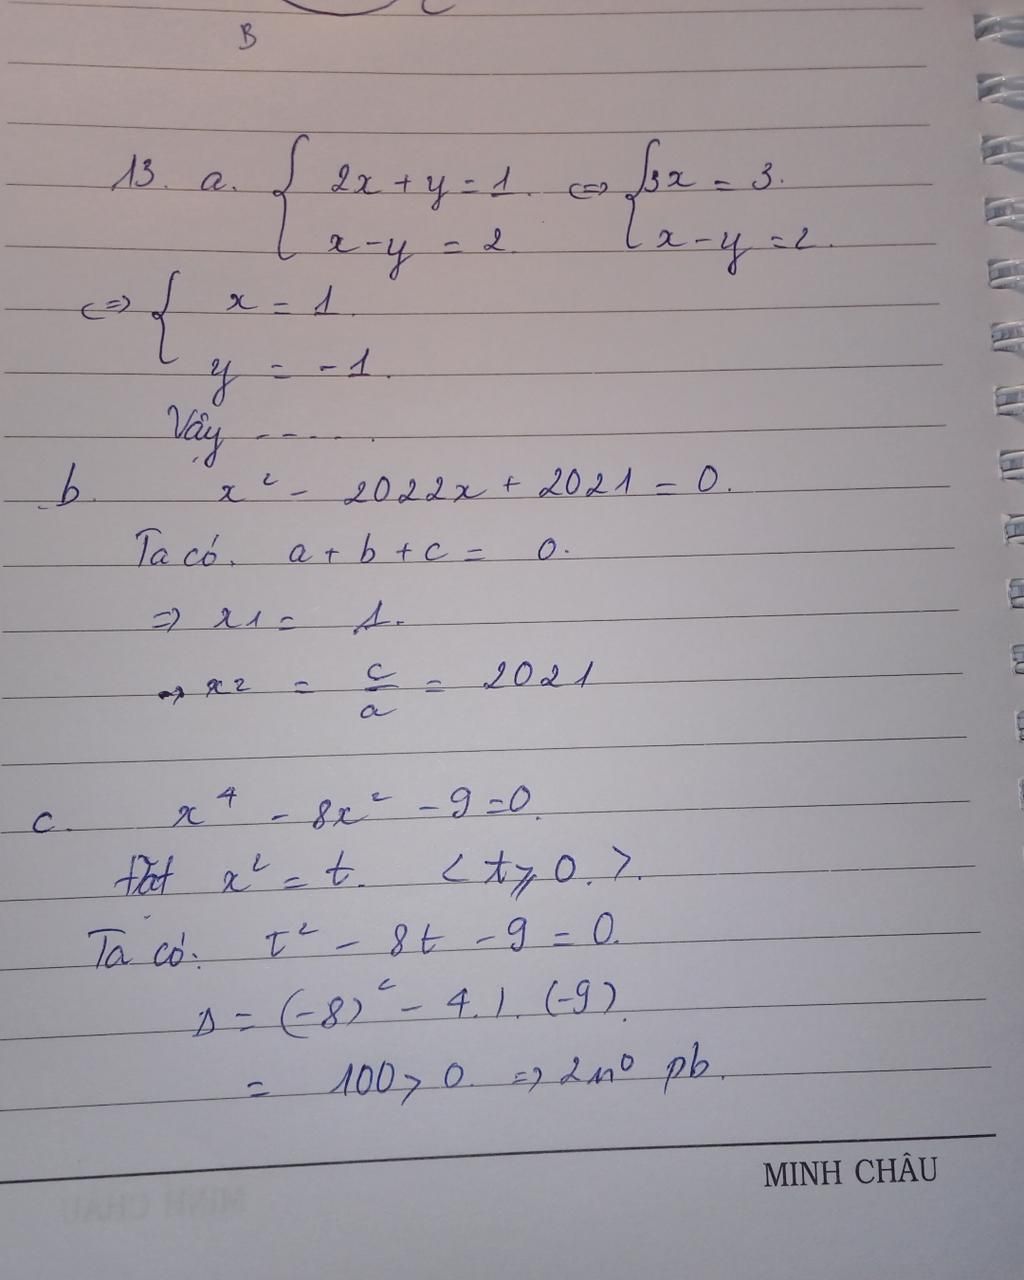 B
13. a. { 2x + y = 1. <=> { 3x = 3.
x - y = 2. x - y = 2.
<=> { x = 1.
y = -1.
Vậy -----.
b. x² - 2022x + 2021 = 0.
Ta có. a + b + c = 0.
=> x1 = 1.
=> x2 = c/a = 2021
c. x⁴ - 8x² - 9 = 0.
Đặt x² = t. < t ⩾ 0. >.
Ta có: t² - 8t - 9 = 0.
Δ = (-8)² - 4.1.(-9).
= 100 > 0. => 2 n⁰ pb.
MINH CHÂU